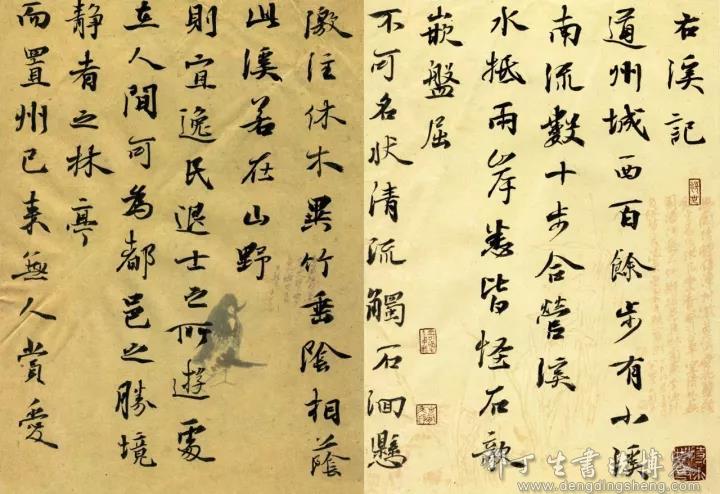 右溪記
道州城西百餘步有小溪
南流數十步合營溪
水抵兩岸悉皆怪石欹
嵌盤屈
不可名状清流觸石洄懸
激注休木異竹垂陰相蔭
此溪若在山野
則宜逸民退士之所遊處
在人間可為都邑之勝境
靜者之林亭
而置州已来無人賞愛
邓丁生書法博客
www.dengdingsheng.com